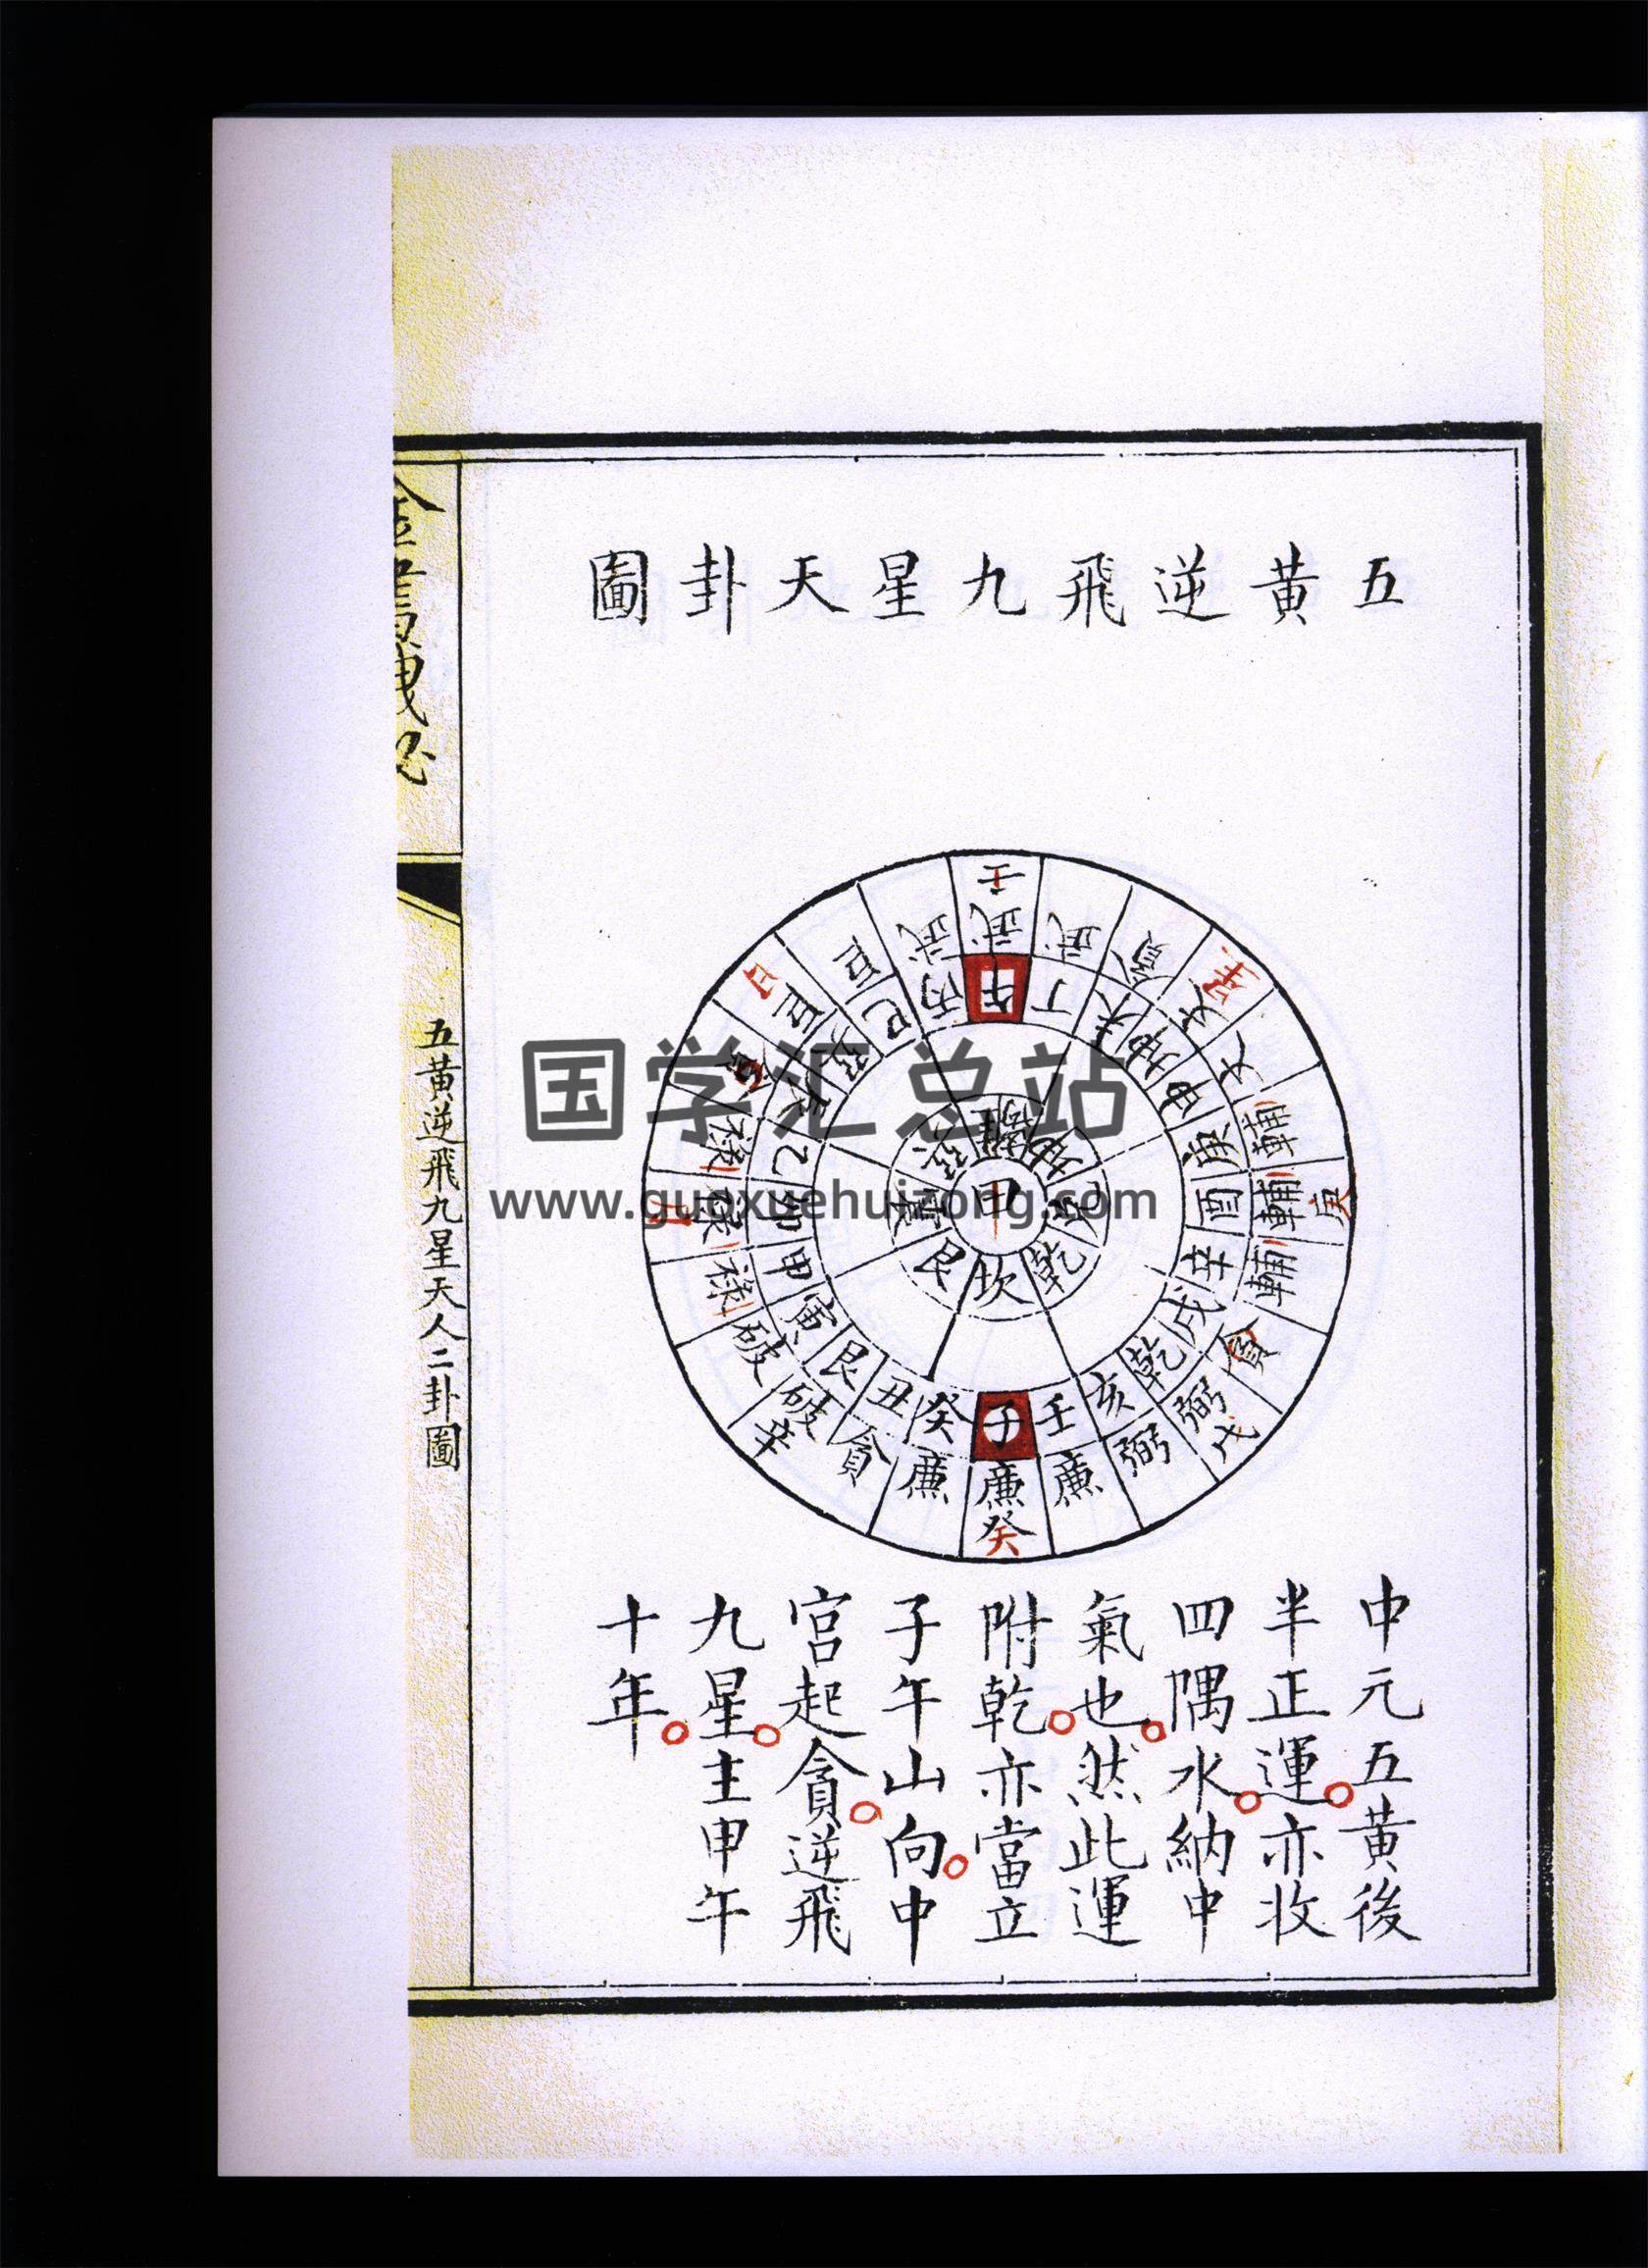 五黃逆飛九星天卦圖
壬
武 武 武
丙 午 丁
巨 巳
巨 巽
辰
祿 乙
祿 卯
祿 甲
破 寅
破 艮
辛
貪 丑
廉 癸
廉 子
癸
廉 壬
弼 亥
弼 乾
戊
貪 戌
輔 辛
輔 酉
庚
輔 庚
文 申
文 坤
未
中
離
坤
兌
乾
坎
艮
震
巽
中元五黃後
半正運亦收
四隅水納中
氣也然此運
附乾亦當立
子午山向中
宮起貪逆飛
九星主甲午
十年
五黃逆飛九星天人二卦圖
国学汇总站
www.guoxuehuizong.com